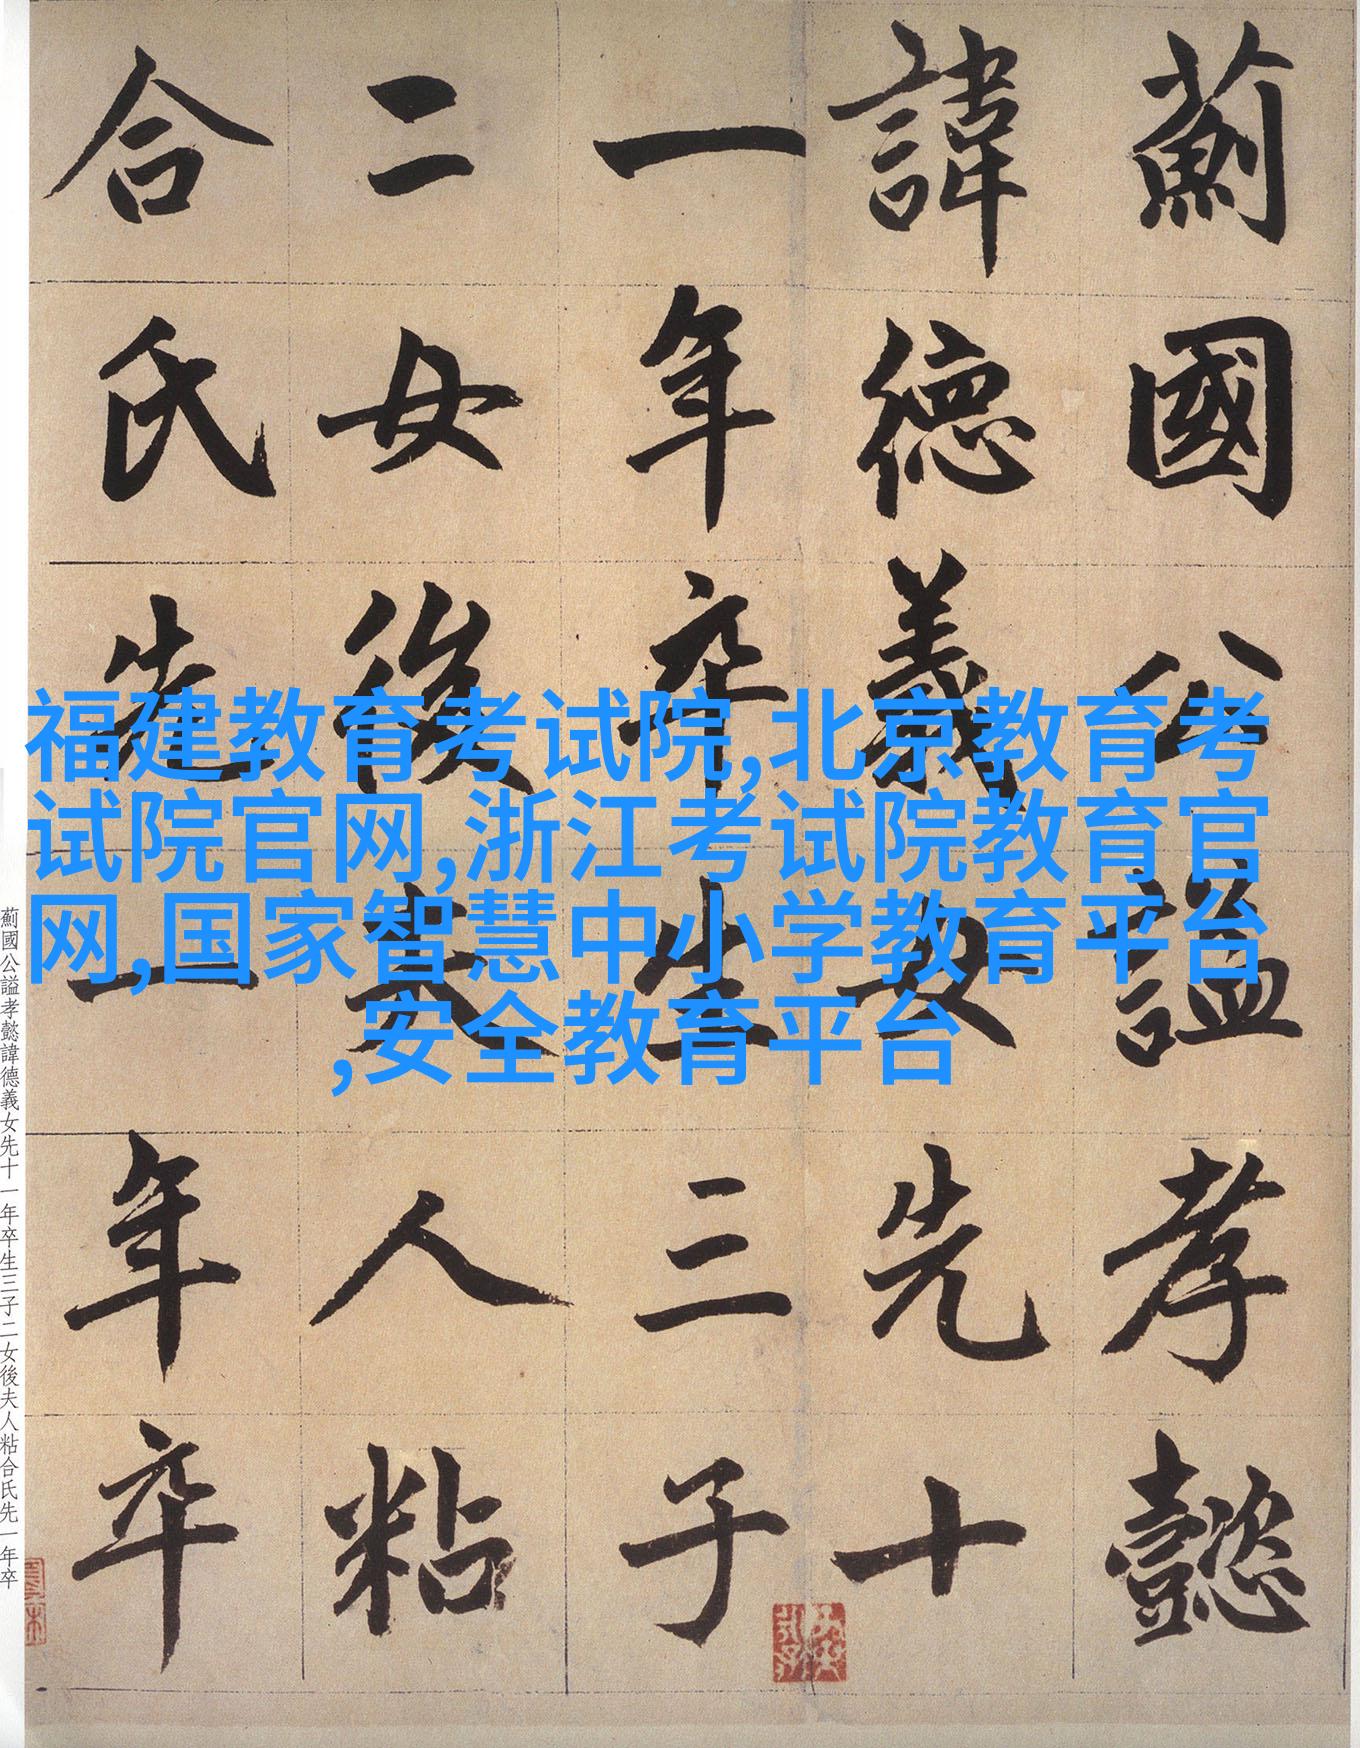 薊國公謚孝懿
諱德義女先十
一年卒生三子
二女後夫人粘
合氏先一年卒
福建教育考试院,北京教育考
试院官网,浙江考试院教育官
网,国家智慧中小学教育平台
,安全教育平台
薊國公謚孝懿諱德義女先十一年卒生三子二女後夫人粘合氏先一年卒